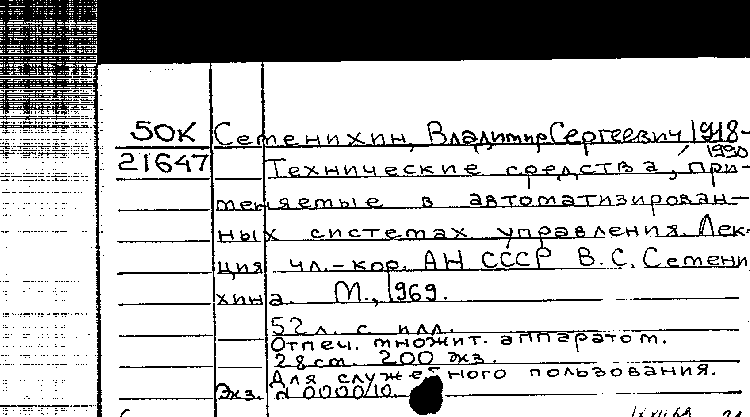 50К Семенихин, Владимир Сергеевич, 1918-
1990
21647 Технические средства, при-
меняемые в автоматизирован-
ных системах управления. Лек-
ция чл.-кор. АН СССР В.С. Семени
хина. М., 1969.
52 л. с илл.
Отпеч. множит. аппаратом.
28 см. 200 экз.
Для служебного пользования.
Экз. N 0000/10